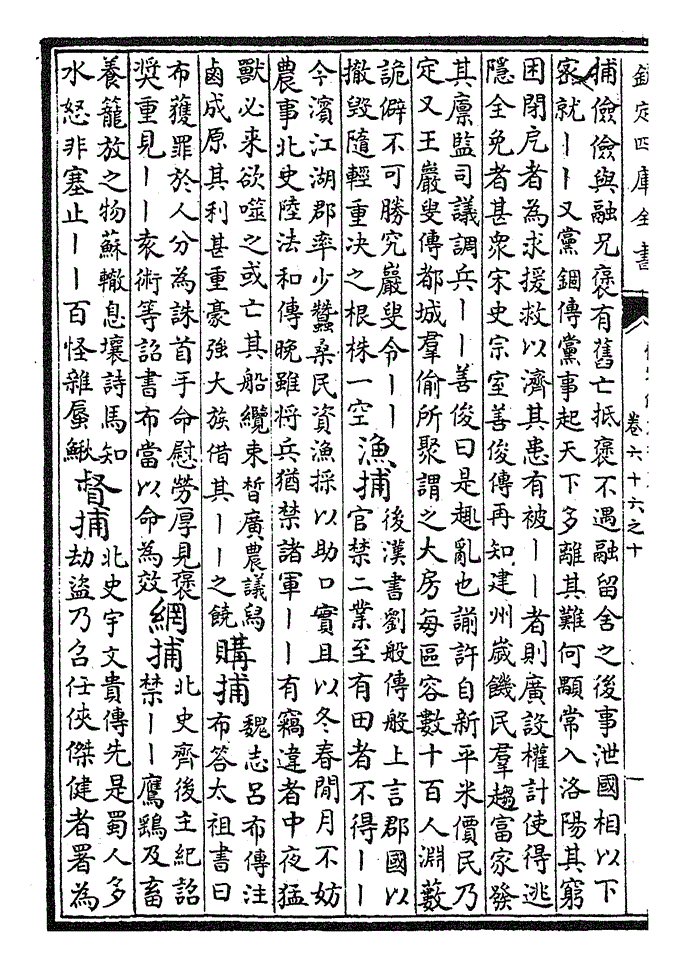 欽定四庫全書
卷六十六之十
捕儉儉與融兄褒有舊亡抵褒不遇融留舍之後事泄國相以下
密就丨丨又黨錮傳黨事起天下多離其難何顒常入洛陽其窮
困閉戹者為求援救以濟其患有被丨丨者則廣設權計使得逃
隱全免者甚衆宋史宗室善俊傳再知建州歲饑民羣趨富家發
其廪監司議調兵丨丨善俊曰是趣亂也諭許自新平米價民乃
定又王巖叟傳都城羣偷所聚謂之大房每區容數十百人淵藪
詭僻不可勝究巖叟令丨丨
撤毀隨輕重決之根株一空
漁捕
後漢書劉般傳般上言郡國以
官禁二業至有田者不得丨丨
今濱江湖郡率少蠶桑民資漁採以助口實且以冬春閒月不妨
農事北史陸法和傳晚雖将兵猶禁諸軍丨丨有竊違者中夜猛
獸必来欲噬之或亡其船纜束晳廣農議舄
鹵成原其利甚重豪強大族借其丨丨之饒
購捕
魏志呂布傳注
布答太祖書曰
布獲罪於人分為誅首手命慰勞厚見褒
奬重見丨丨袁術等詔書布當以命為效
網捕
北史齊後主紀詔
禁丨丨鷹鷂及畜
養籠放之物蘇轍息壤詩馬知
水怒非塞止丨丨百怪雜蜃鰍
督捕
北史宇文貴傳先是蜀人多
劫盜乃召任俠傑健者署為